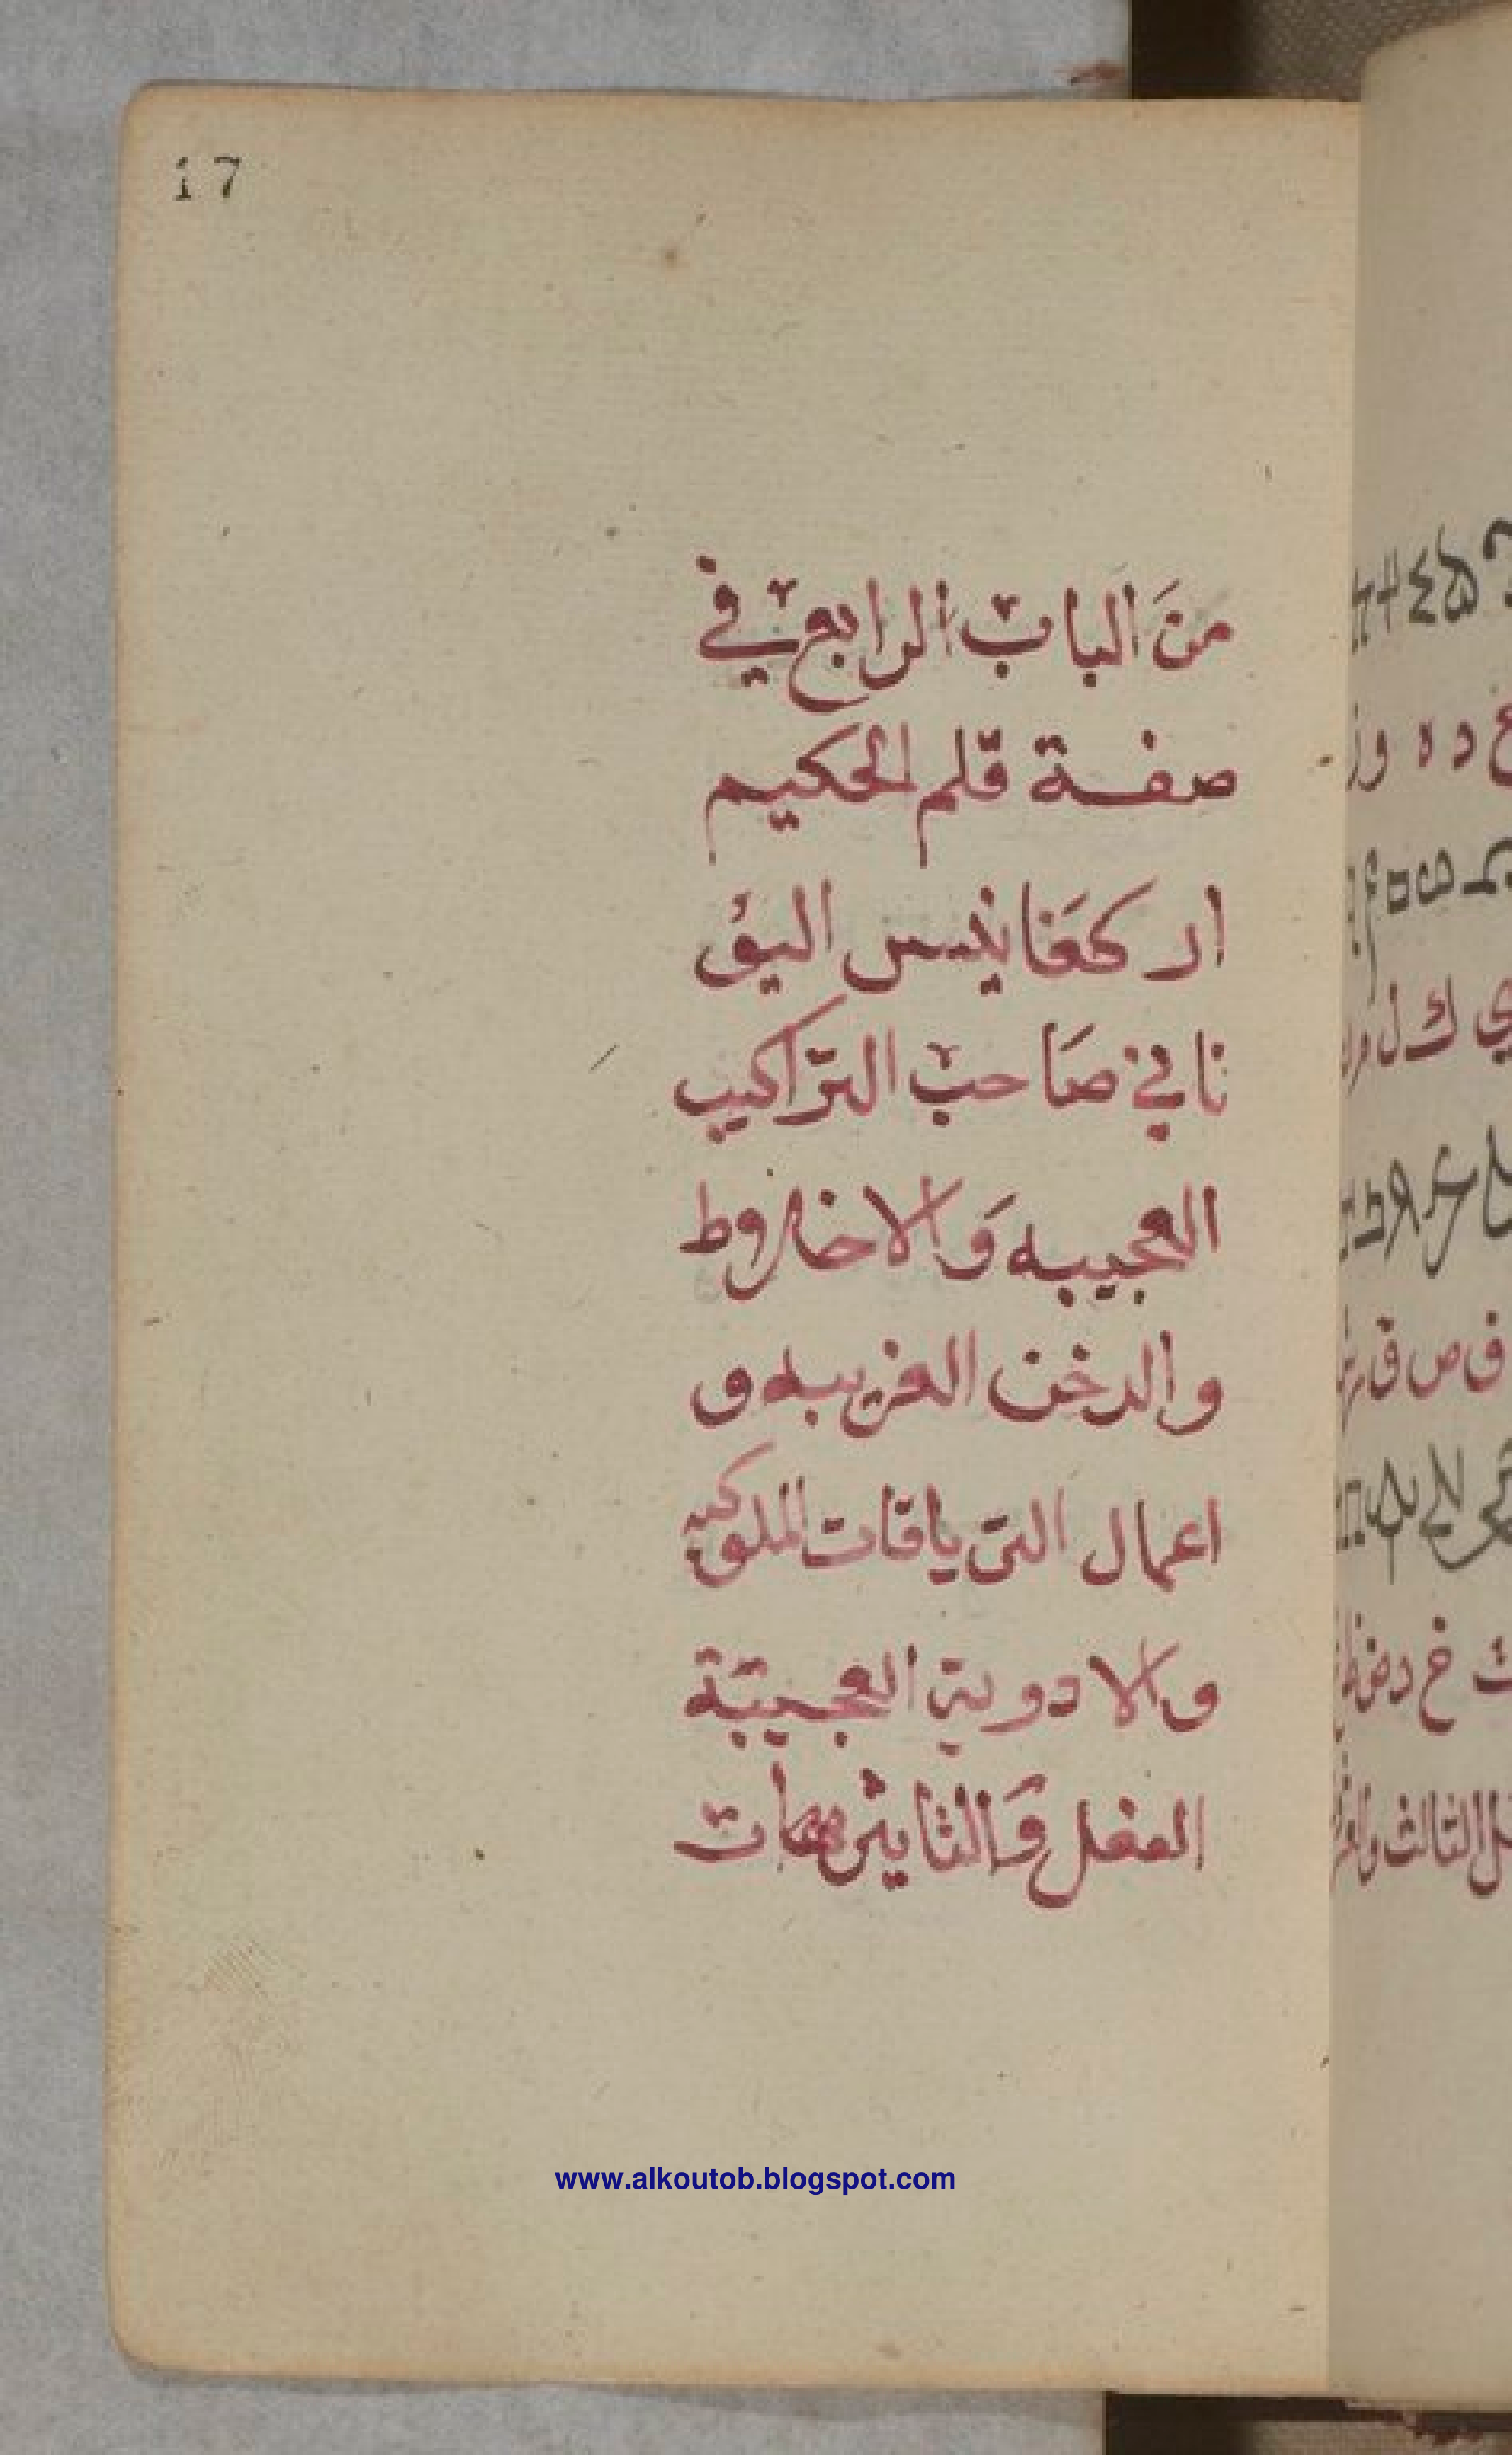 17
من الباب الرابع في
صفة قلم الحكيم
اركعانيس اليو
ناني صاحب التراكيب
العجيبه والاخلاوط
والدخن الغريبه و
اعمال الترياقات الملوكيه
والادوية العجيبة
الفعل والتاثير
www.alkoutob.blogspot.com